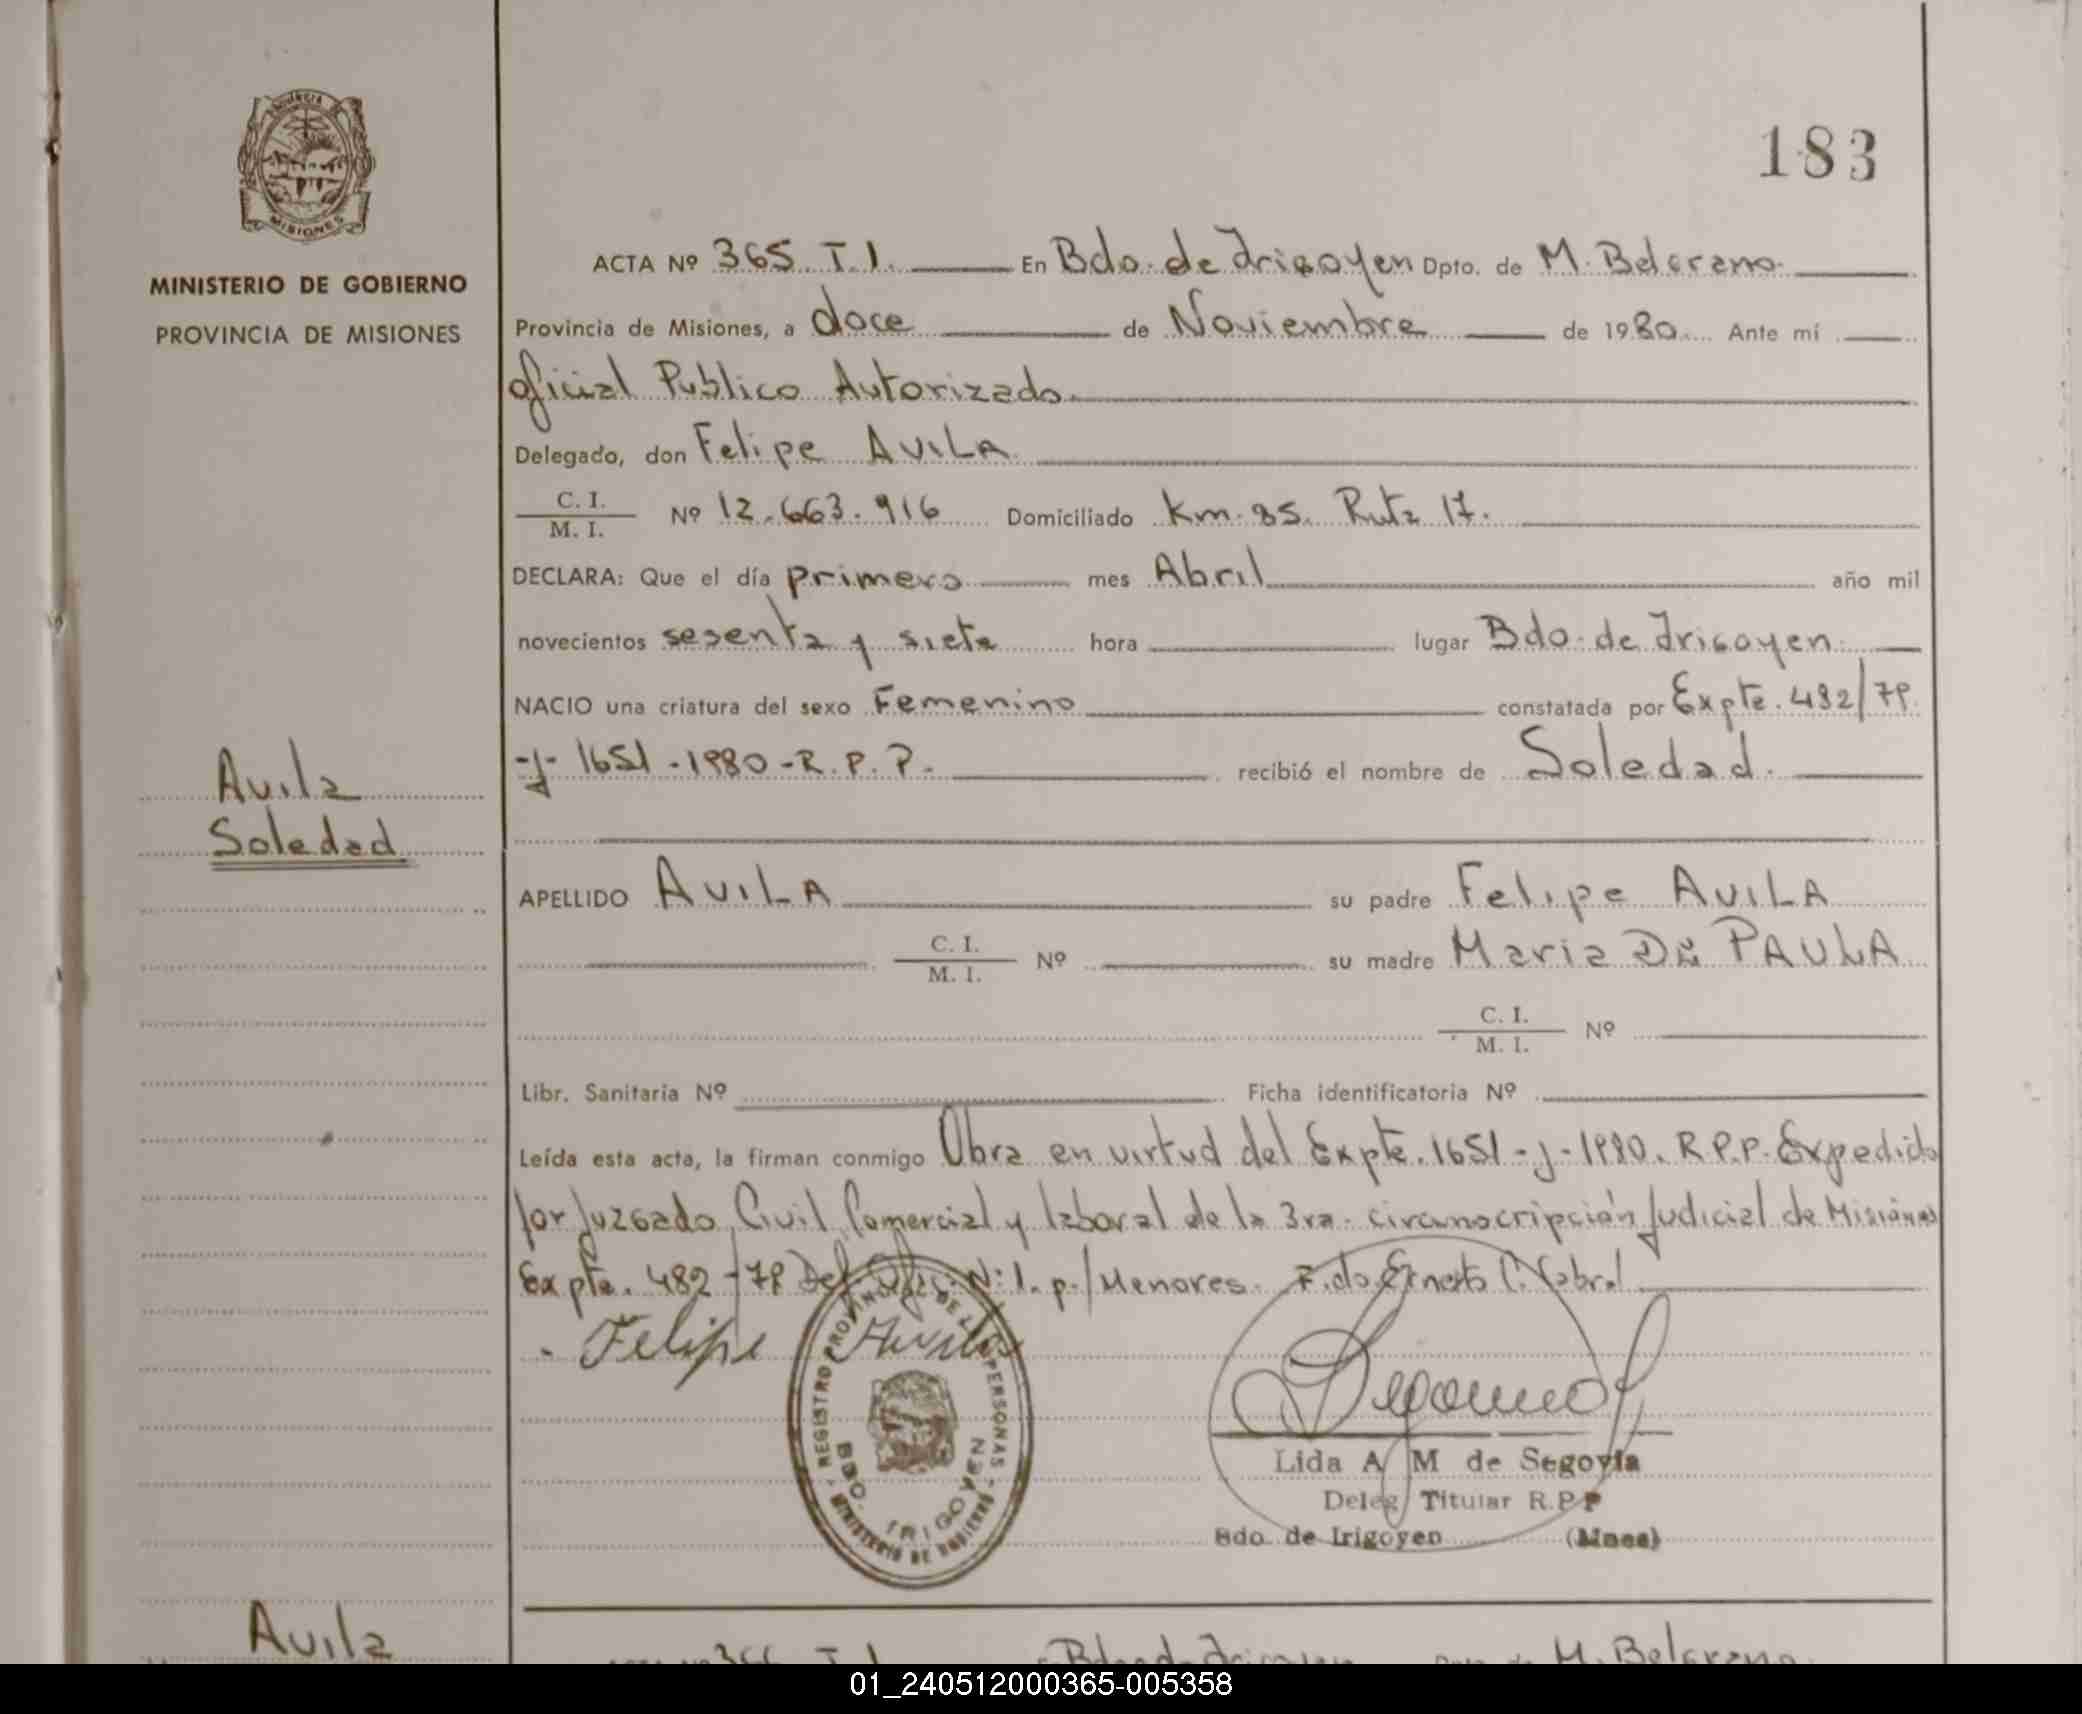 183
PROVINCIA DE MISIONES
MINISTERIO DE GOBIERNO
PROVINCIA DE MISIONES
ACTA Nº 365 T.I. En Bdo. de Irigoyen Dpto. de M. Belgrano
Provincia de Misiones, a doce de Noviembre de 1980 Ante mí
oficial Publico Autorizado.
Delegado, don Felipe AVILA
C. I.
M. I. Nº 12.663.916 Domiciliado Km. 95. Ruta 17.
DECLARA: Que el día primero mes Abril año mil
novecientos sesenta y siete hora lugar Bdo. de Irigoyen
NACIO una criatura del sexo Femenino constatada por Expte. 482/79.
-J- 1651-1980-R.P.P. recibió el nombre de Soledad.
Avila
Soledad
APELLIDO AVILA su padre Felipe AVILA
C. I.
M. I. Nº su madre Maria DE PAULA
C. I.
M. I. Nº
Libr. Sanitaria Nº Ficha identificatoria Nº
Leída esta acta, la firman conmigo Obra en virtud del Expte. 1651-J-1980. R.P.P. Expedido
por Juzgado Civil Comercial y laboral de la 3ra. circunscripción Judicial de Misiones
Expte. 482-79 Def. Ofic. Nº 1. p/Menores. F.do Ernesto C. Cabral
Felipe Avila
REGISTRO PROVINCIAL DE LAS PERSONAS
BDO. IRIGOYEN
MINISTERIO DE GOBIERNO
Lida A M de Segovia
Deleg Titular R.P.P
Bdo. de Irigoyen (Mnes)
Avila
366 T.I. Bdo. de Irigoyen M. Belgrano
01_240512000365-005358